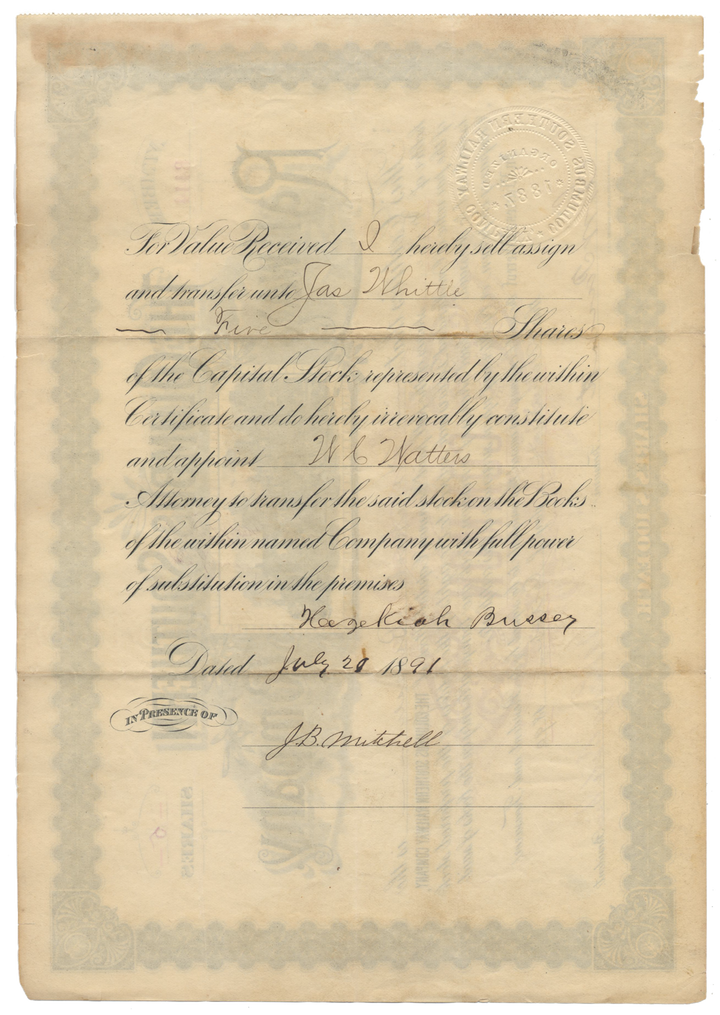 For Value Received I hereby sell assign
and transfer unto Jas Whittle
Five Shares
of the Capital Stock represented by the within
Certificate and do hereby irrevocably constitute
and appoint W C Watters
Attorney to transfer the said stock on the Books
of the within named Company with full power
of substitution in the premises
Hezekiah Bussey
Dated July 20 1891
IN PRESENCE OF
J.B. Mitchell
COLUMBUS SOUTHERN RAILWAY
ORGANIZED
1887
SHARES